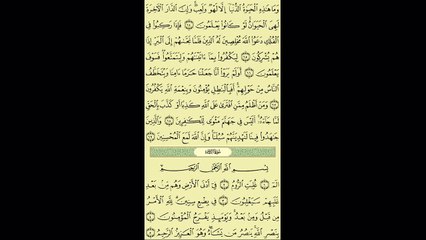 وَمَا هَـٰذِهِ ٱلْحَيَوٰةُ ٱلدُّنْيَآ إِلَّا لَهْوٌ وَلَعِبٌ ۚ وَإِنَّ ٱلدَّارَ ٱلْـَٔاخِرَةَ
لَهِىَ ٱلْحَيَوَانُ ۚ لَوْ كَانُوا۟ يَعْلَمُونَ ﴿٦٤﴾ فَإِذَا رَكِبُوا۟ فِى
ٱلْفُلْكِ دَعَوُا۟ ٱللَّهَ مُخْلِصِينَ لَهُ ٱلدِّينَ فَلَمَّا نَجَّىٰهُمْ إِلَى ٱلْبَرِّ إِذَا
هُمْ يُشْرِكُونَ ﴿٦٥﴾ لِيَكْفُرُوا۟ بِمَآ ءَاتَيْنَـٰهُمْ وَلِيَتَمَتَّعُوا۟ ۖ فَسَوْفَ
يَعْلَمُونَ ﴿٦٦﴾ أَوَلَمْ يَرَوْا۟ أَنَّا جَعَلْنَا حَرَمًا ءَامِنًا وَيُتَخَطَّفُ
ٱلنَّاسُ مِنْ حَوْلِهِمْ ۚ أَفَبِٱلْبَـٰطِلِ يُؤْمِنُونَ وَبِنِعْمَةِ ٱللَّهِ يَكْفُرُونَ
﴿٦٧﴾ وَمَنْ أَظْلَمُ مِمَّنِ ٱفْتَرَىٰ عَلَى ٱللَّهِ كَذِبًا أَوْ كَذَّبَ بِٱلْحَقِّ
لَمَّا جَآءَهُۥٓ ۚ أَلَيْسَ فِى جَهَنَّمَ مَثْوًى لِّلْكَـٰفِرِينَ ﴿٦٨﴾ وَٱلَّذِينَ
جَـٰهَدُوا۟ فِينَا لَنَهْدِيَنَّهُمْ سُبُلَنَا ۚ وَإِنَّ ٱللَّهَ لَمَعَ ٱلْمُحْسِنِينَ ﴿٦٩﴾
بِسْمِ ٱللَّهِ ٱلرَّحْمَـٰنِ ٱلرَّحِيمِ
الٓمٓ ﴿١﴾ غُلِبَتِ ٱلرُّومُ ﴿٢﴾ فِىٓ أَدْنَى ٱلْأَرْضِ وَهُم مِّنۢ بَعْدِ
غَلَبِهِمْ سَيَغْلِبُونَ ﴿٣﴾ فِى بِضْعِ سِنِينَ ۗ لِلَّهِ ٱلْأَمْرُ
مِن قَبْلُ وَمِنۢ بَعْدُ ۚ وَيَوْمَئِذٍ يَفْرَحُ ٱلْمُؤْمِنُونَ ﴿٤﴾
بِنَصْرِ ٱللَّهِ ۚ يَنصُرُ مَن يَشَآءُ ۖ وَهُوَ ٱلْعَزِيزُ ٱلرَّحِيمُ ﴿٥﴾